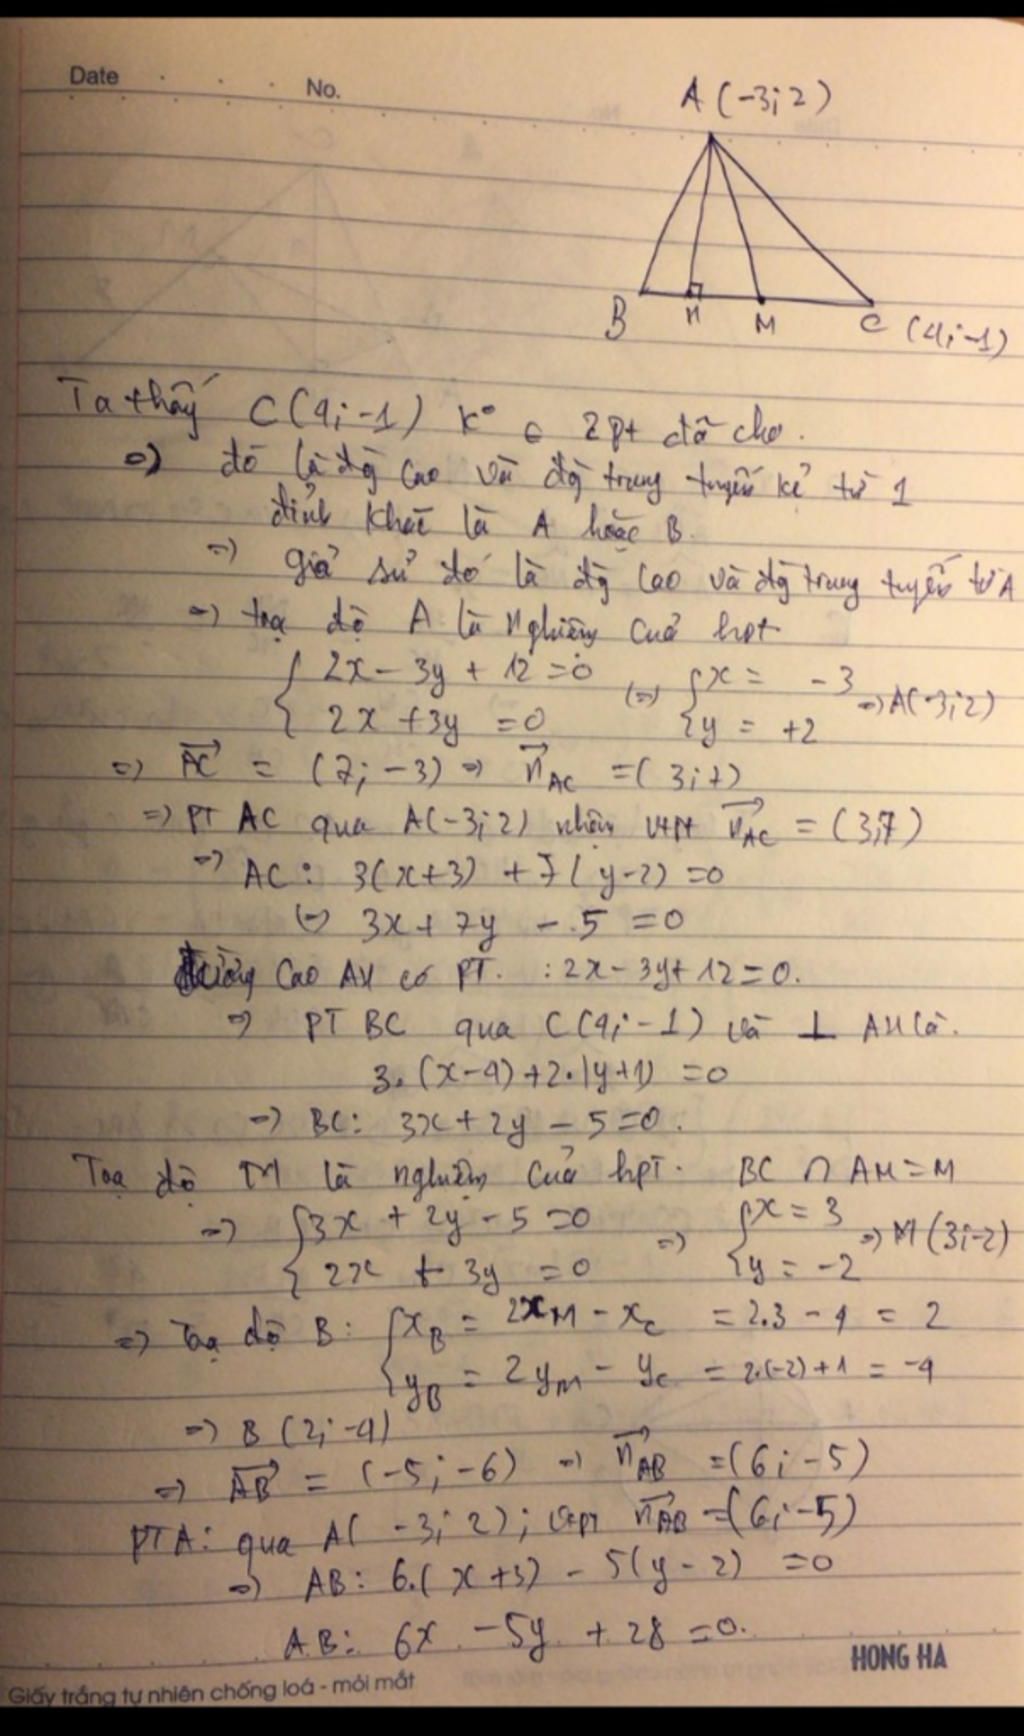 Date
No.
A (-3; 2)
B H M C (4; -1)
Ta thấy C(4; -1) k° ∈ 2 pt đã cho.
=> đó là đg cao và đg trung tuyến kẻ từ 1
đỉnh khác là A hoặc B.
=> giả sử đó là đg cao và đg trung tuyến từ A
=> toạ độ A là nghiệm của hpt
{ 2x - 3y + 12 = 0 (=) { x = -3 => A(-3; 2)
{ 2x + 3y = 0 { y = +2
=> AC→ = (7; -3) => n→AC = (3; 7)
=> PT AC qua A(-3; 2) nhận vtpt n→AC = (3; 7)
=> AC: 3(x+3) + 7(y-2) = 0
(=) 3x + 7y - 5 = 0
Đường cao AH có PT : 2x - 3y + 12 = 0.
=> PT BC qua C(4; -1) và ⊥ AH là.
3.(x-4) + 2.(y+1) = 0
=> BC: 3x + 2y - 5 = 0.
Toạ độ M là nghiệm của hpT. BC ∩ AM = M
=> { 3x + 2y - 5 = 0 => { x = 3 => M(3; -2)
{ 2x + 3y = 0 { y = -2
=> Toạ độ B: { xB = 2xM - xC = 2.3 - 4 = 2
{ yB = 2yM - yC = 2.(-2) + 1 = -4
=> B (2; -4)
=> AB→ = (-5; -6) => n→AB = (6; -5)
PT A: qua A(-3; 2); vtpt n→AB = (6; -5)
=> AB: 6.(x+3) - 5(y-2) = 0
AB: 6x - 5y + 28 = 0.
HONG HA
Giấy trắng tự nhiên chống loá - mỏi mắt